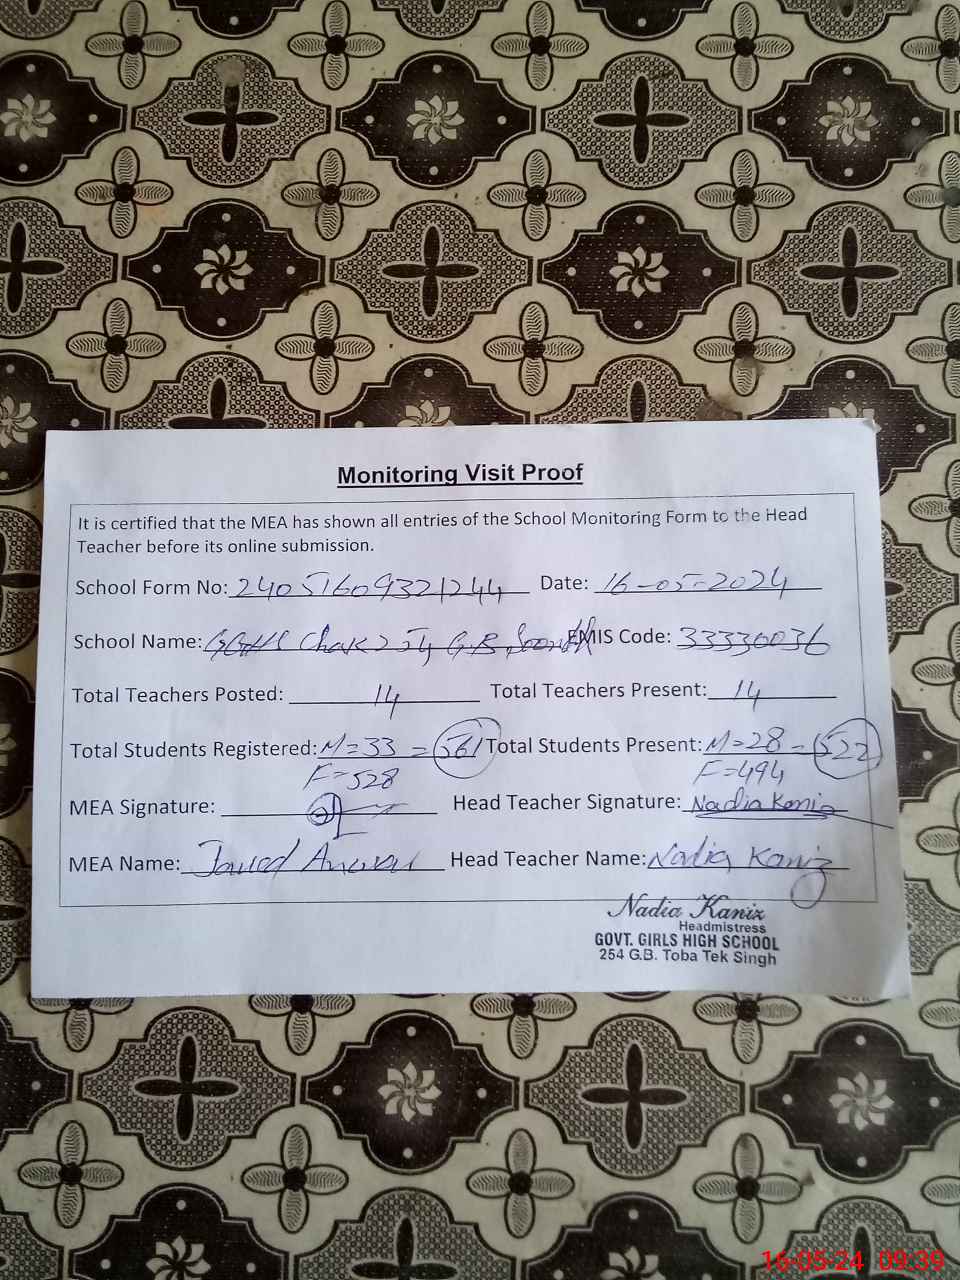 Monitoring Visit Proof
It is certified that the MEA has shown all entries of the School Monitoring Form to the Head
Teacher before its online submission.
School Form No: 24051609321244 Date: 16-05-2024
School Name: GGHS Chak 254 G.B, EMIS Code: 33330036
Total Teachers Posted: 14 Total Teachers Present: 14
Total Students Registered: M=33 = 561 Total Students Present: M=28 = 522
F=528 F=494
MEA Signature: Head Teacher Signature: Nadia Kaniz
MEA Name: Javed Anwar Head Teacher Name: Nadia Kaniz
Nadia Kaniz
Headmistress
GOVT. GIRLS HIGH SCHOOL
254 G.B. Toba Tek Singh
16-05-24 09:39